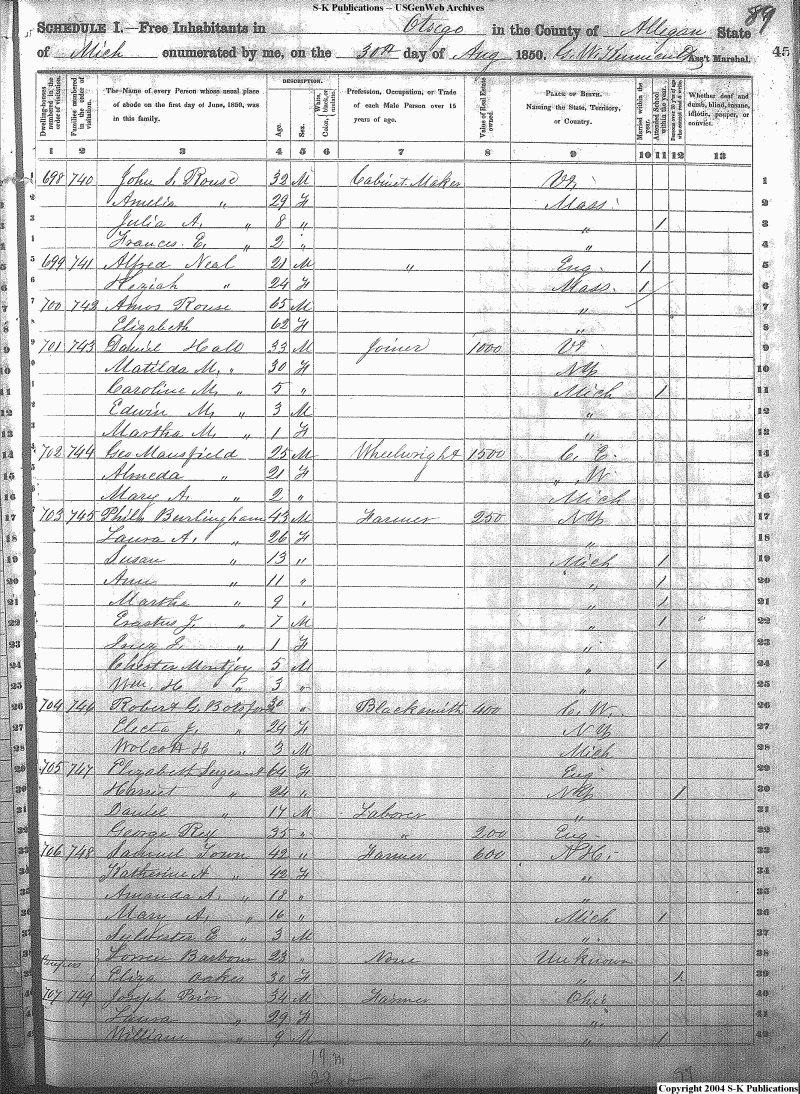 S-K Publications – USGenWeb Archives
89
SCHEDULE I.—Free Inhabitants in Otsego in the County of Allegan State
of Mich enumerated by me, on the 30th day of Aug 1850. Ass't Marshal. 45
Dwelling-houses numbered in the order of visitation.
Families numbered in the order of visitation.
The Name of every Person whose usual place of abode on the first day of June, 1850, was in this family.
DESCRIPTION.
Age.
Sex.
Color, White, black, or mulatto.
Profession, Occupation, or Trade of each Male Person over 15 years of age.
Value of Real Estate owned.
PLACE OF BIRTH. Naming the State, Territory, or Country.
Married within the year.
Attended School within the year.
Persons over 20 y'rs of age who cannot read & write.
Whether deaf and dumb, blind, insane, idiotic, pauper, or convict.
1 2 3 4 5 6 7 8 9 10 11 12 13
1 698 740 John S. Rouse 32 M Cabinet Maker Vt 1
2 Amelia " 29 F Mass 2
3 Julia A. " 8 " " 1 3
4 Frances E. " 2 " " 4
5 699 741 Alfred Neal 21 M " Eng 1 5
6 Keziah " 24 F Mass 1 6
7 700 742 Amos Rouse 65 M " 7
8 Elizabeth 62 F " 8
9 701 743 Daniel Hall 33 M Joiner 1000 Vt 9
10 Matilda M. " 30 F NY 10
11 Caroline M. " 5 " Mich 1 11
12 Edwin M. " 3 M " 12
13 Martha M. " 1 F " 13
14 702 744 Geo Mansfield 25 M Wheelwright 1500 C. E. 14
15 Almeda " 21 F " W 15
16 Mary A. " 2 " Mich 16
17 703 745 Philh Burlingham 43 M Farmer 250 NY 17
18 Laura A. " 26 F " 18
19 Susan " 13 " Mich 1 19
20 Ann " 11 " " 1 20
21 Martha " 9 " " 1 21
22 Erastus J. " 7 M " 1 " 22
23 " 1 F " 23
24 Chester Montjoy 5 M " 1 24
25 Wm. H " 3 " " 25
26 704 746 Robert G. Botsford 30 " Blacksmith 400 C. W. 26
27 Electa J. " 24 F NY 27
28 Wolcott H " 3 M Mich 28
29 705 747 Elizabeth Sergeant 64 F Eng 29
30 Harriet " 24 " NY 1 30
31 Daniel " 17 M Laborer " 31
32 George Rey 35 " " 200 Eng 32
33 706 748 Samuel Town 42 " Farmer 600 N.H. 33
34 Katherine H " 42 F " 34
35 Amanda A. " 18 " " 35
36 Mary A. " 16 " Mich 1 36
37 Sylvester E " 3 M " 37
38 Lorren Barbour 23 " None Unknown 38
39 Eliza Oakes 30 F " 1 39
40 707 749 Joseph Prior 34 M Farmer Ohio 40
41 Laura " 29 F " 41
42 William " 9 M " 1 42
19 m
23
Copyright 2004 S-K Publications